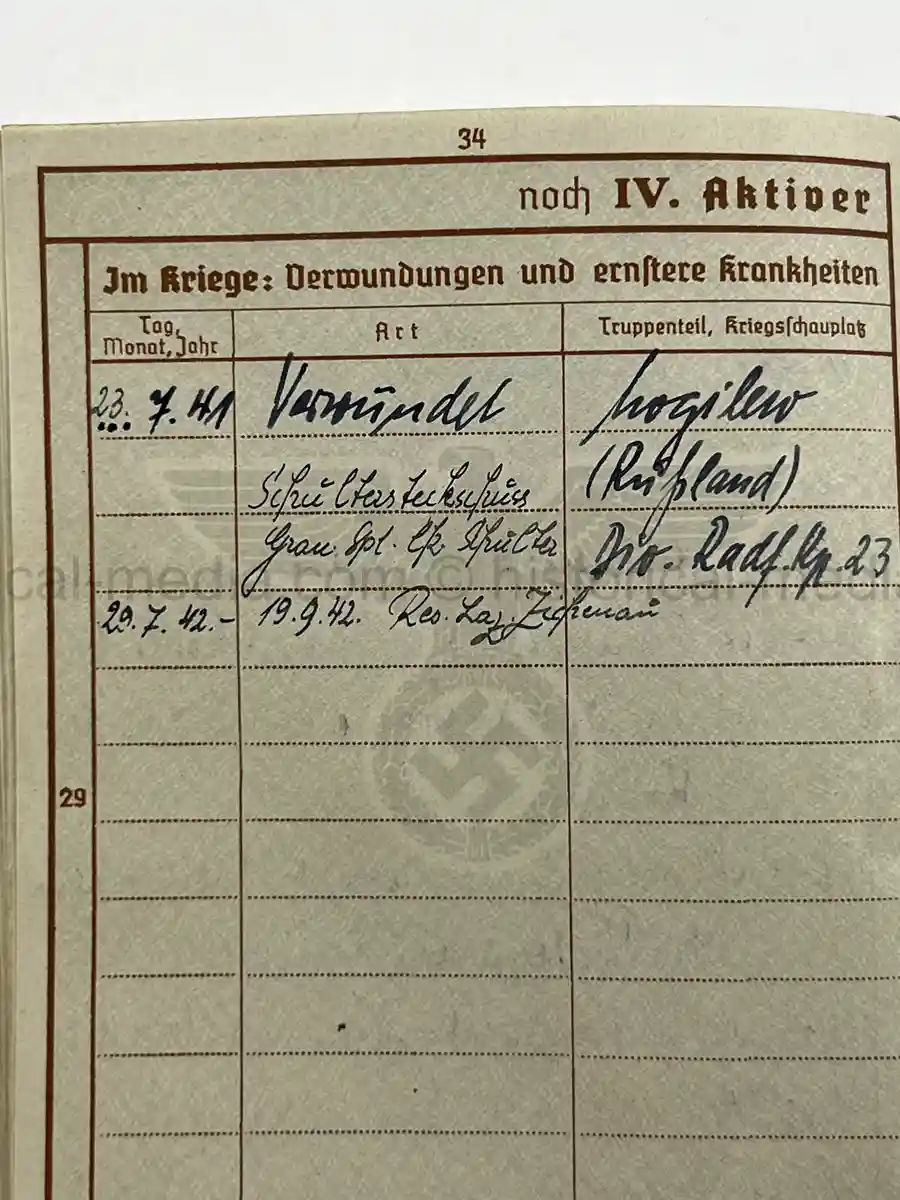 34
noch IV. Aktiver
Im Kriege: Verwundungen und ernstere Krankheiten
Tag, Monat, Jahr
Art
Truppenteil, Kriegsschauplatz
23. 7. 41 Verwundet Mogilew
Schultersteckschuss (Rußland)
Gran. Spl. lk. Schulter Div. Radf. Kp. 23
29.7. 42.- 19.9.42. Res. Laz. Zichenau
29